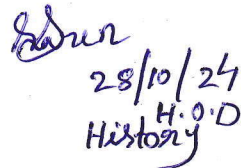 28/10/24
H.O.D
History